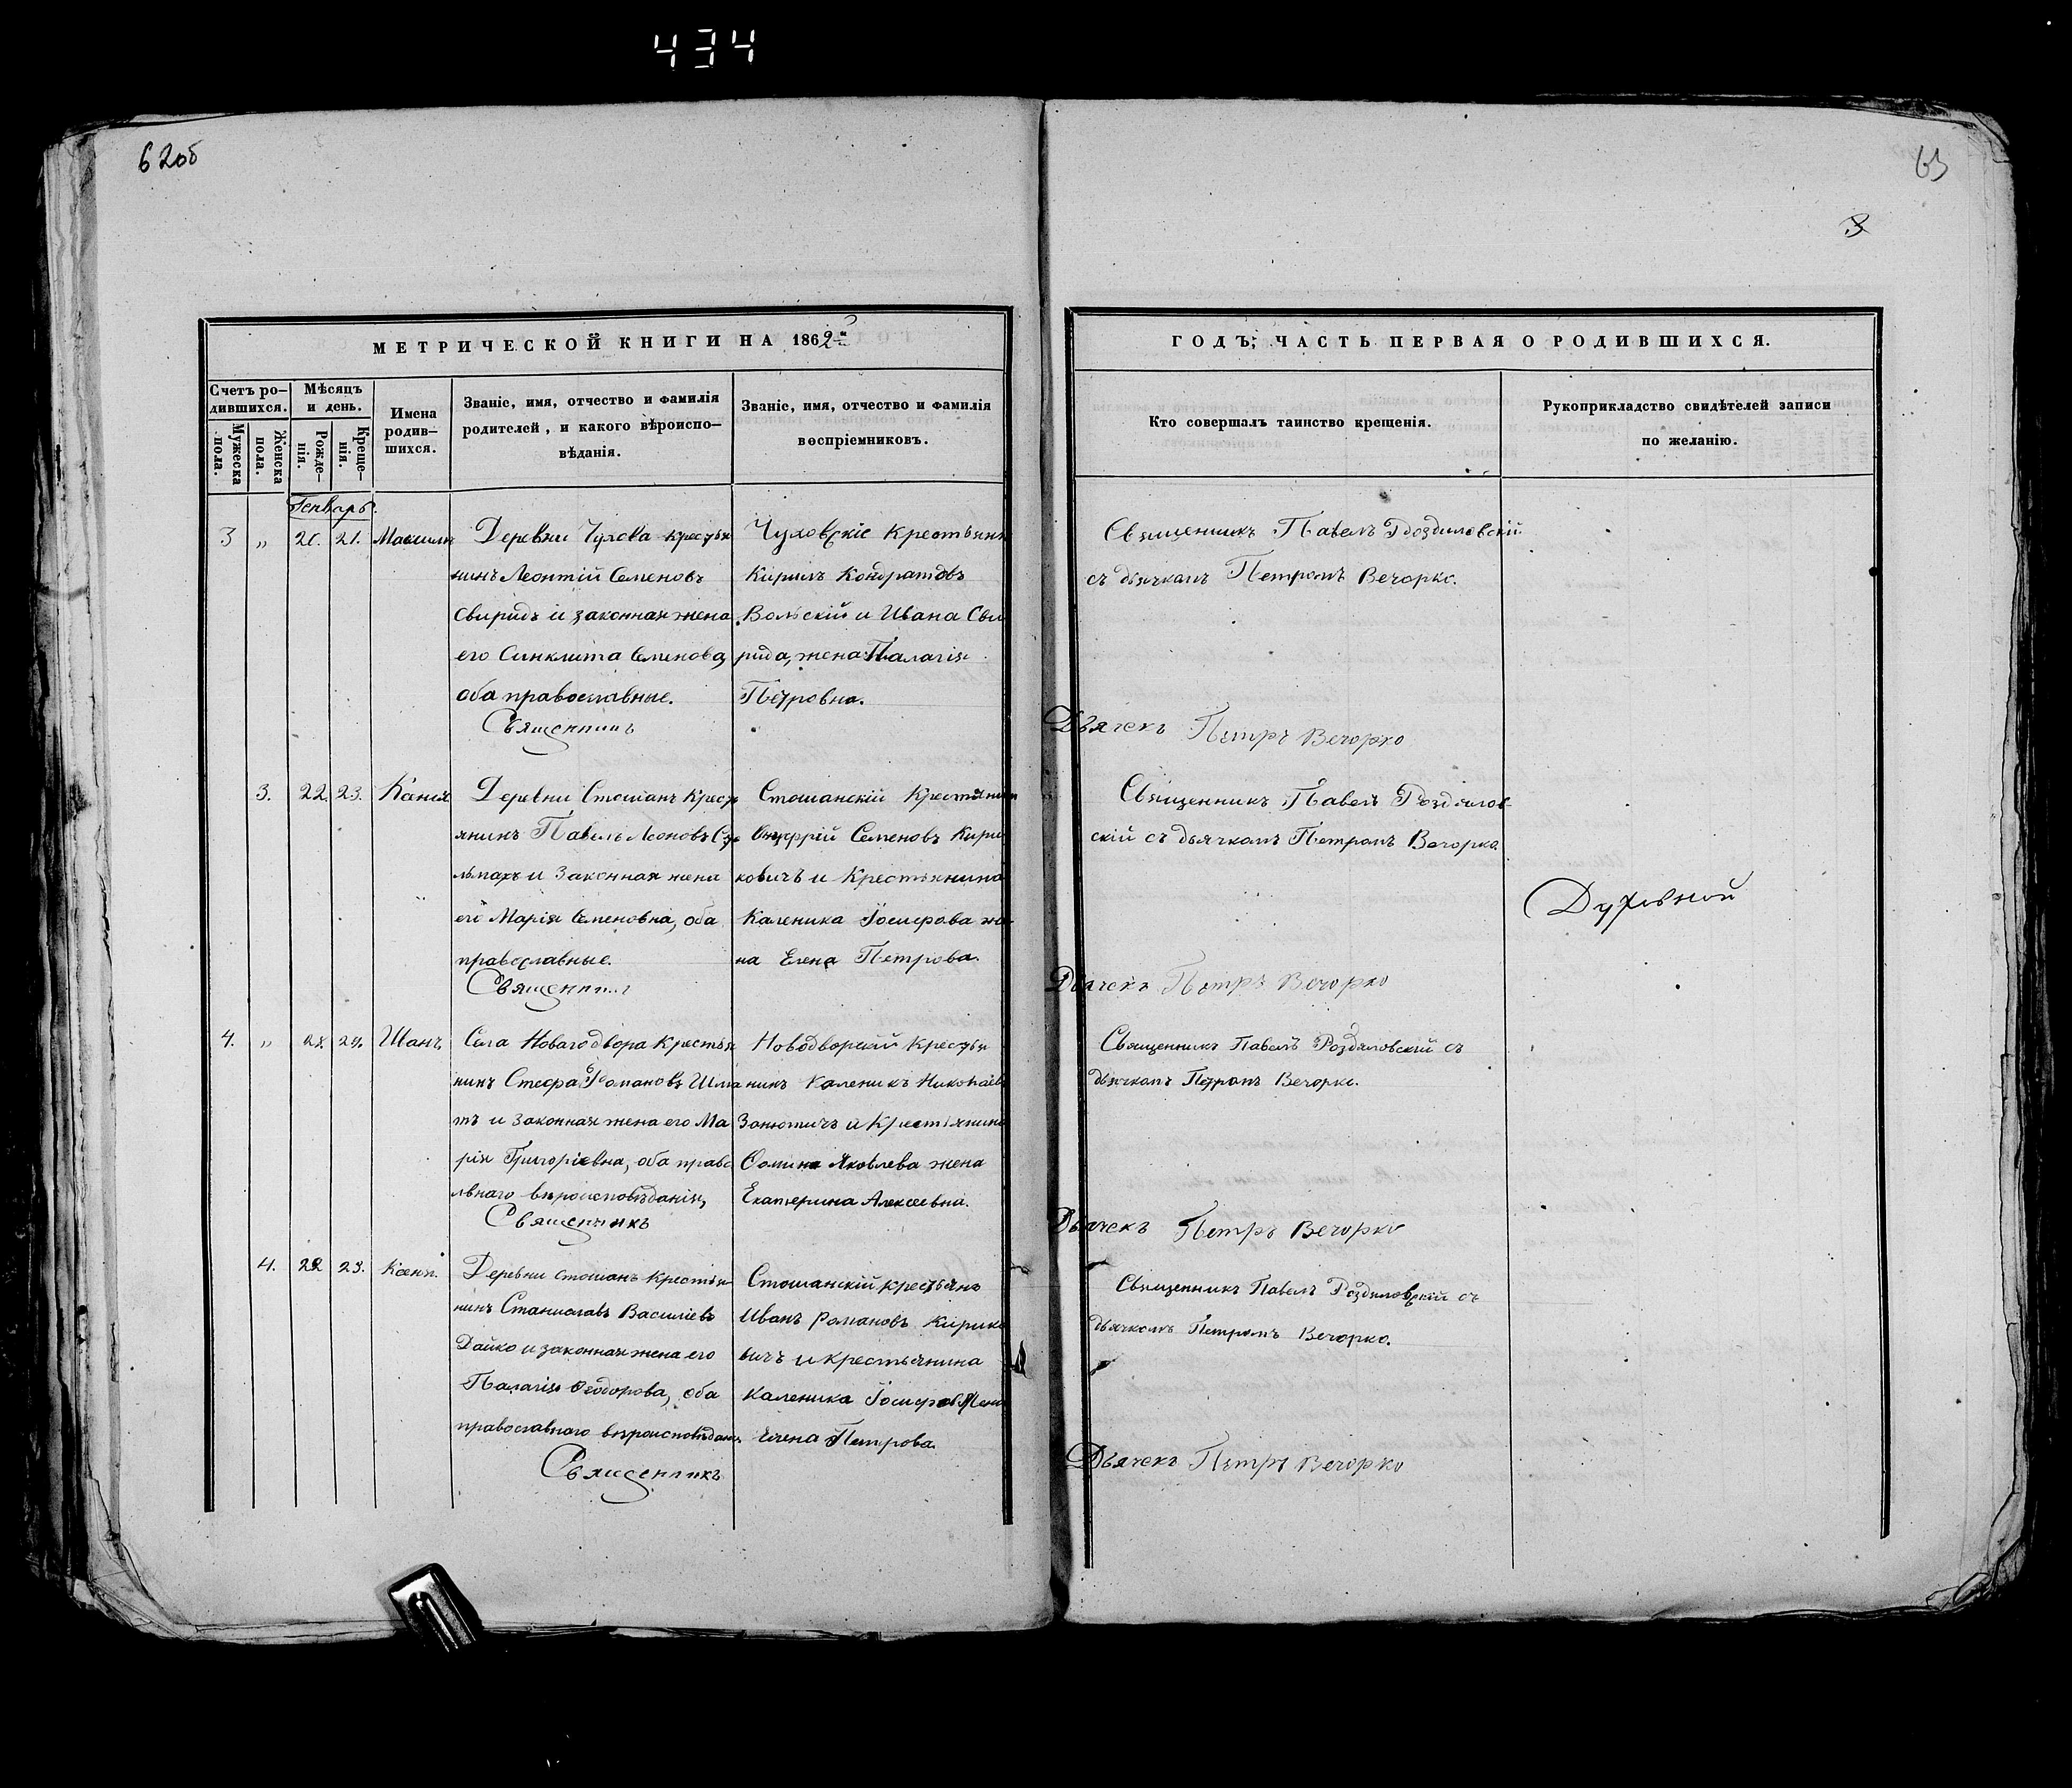 434
62об
63
3
МЕТРИЧЕСКОЙ КНИГИ НА 1862
ГОДЪ, ЧАСТЬ ПЕРВАЯ О РОДИВШИХСЯ.
Счетъ ро-
дившихся.
Мужеска
пола.
Женска
пола.
Мѣсяцъ
и день.
Рожде-
нія.
Креще-
нія.
Имена
родив-
шихся.
Званіе, имя, отчество и фамилія
родителей, и какого вѣроиспо-
вѣданія.
Званіе, имя, отчество и фамилія
воспріемниковъ.
Кто совершалъ таинство крещенія.
Рукоприкладство свидѣтелей записи
по желанію.
Генварь.
3 „ 20. 21.
Деревни Чухова крестья
нинъ Леонтій Семеновъ
Свиридъ и законная жена
его Синклита Семенова,
оба православные.
Священникъ
Чуховскіе Крестьяни
Кирилъ Кондратовъ
Вольскій и Ивана Сви
рида, жена Палагія
Петровна.
Священникъ Павелъ Роздяловскій
съ дьячкомъ Петромъ Вечорко.
Дьячекъ Петръ Вечорко
3. 22. 23. Ксенія
Деревни Стошанъ Крест
янинъ Павелъ Леоновъ
и Законная жена
его Марія Семеновна, оба
православные.
Священникъ
Стошанскій Крестянин
Онуфрій Семеновъ Кири
ковичъ и Крестьянина
Каленика Іосифова же
на Елена Петрова.
Священникъ Павелъ Роздялов
скій съ дьячкомъ Петромъ Вечорко
Дьячекъ Петръ Вечорко
4. „ 28. 29. Иванъ
Села Новагодвора Крестья
нинъ Стефа Романовъ Шма
тъ и Законная жена его Ма
рія Григоріевна, оба право
льнаго вѣроисповѣданія,
Священникъ
Новодворскій Крестья
нинъ Каленикъ Николаев
Занютичъ и Крестьянина
Яковлева жена
Екатерина Алексеевна.
Священникъ Павелъ Роздяловскій съ
дьячкомъ Петромъ Вечорко.
Дьячекъ Петръ Вечорко
4. 22 23. Ксенія.
Деревни Стошанъ Крестья
нинъ Станиславъ Василіевъ
Дайко и законная жена его
Палагія Ѳеодорова, оба
православнаго вѣроисповѣдан
Священникъ
Стошанскій крестьянъ
Иванъ Романовъ Кирико
вичъ и крестьянина
Каленика Іосифов Жена
Елена Петрова.
Священникъ Павелъ Роздяловскій съ
дьячкомъ Петромъ Вечорко.
Дьячекъ Петръ Вечорко